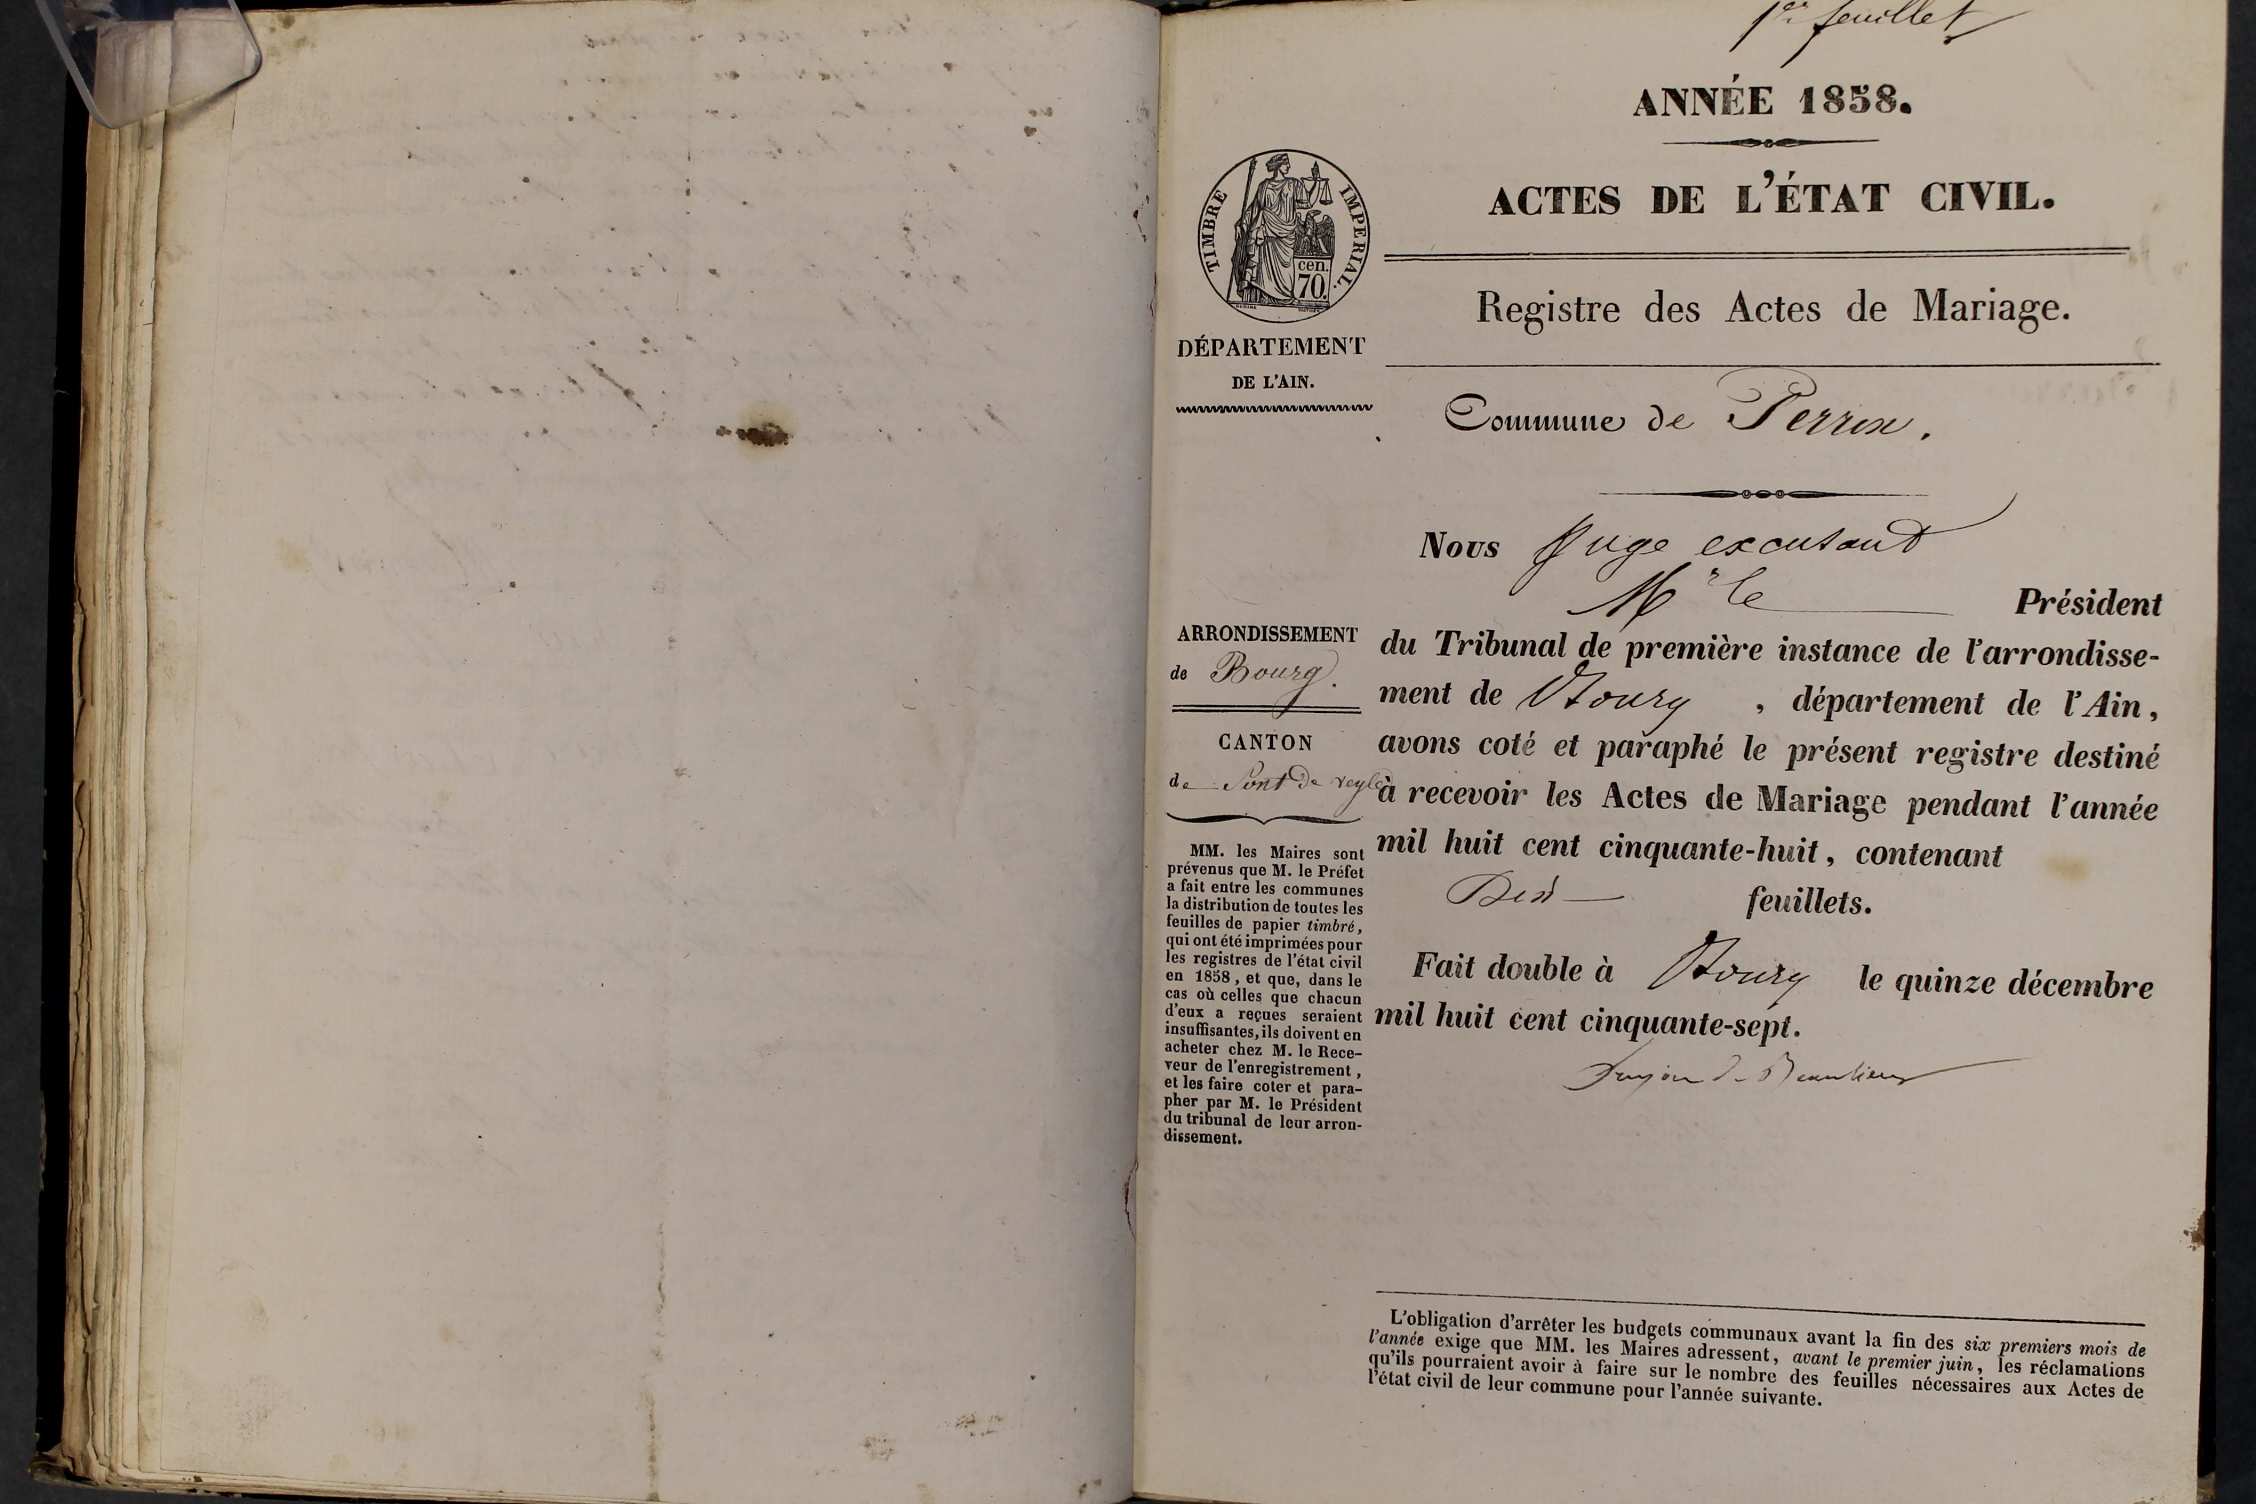 1er feuillet
ANNÉE 1858.
ACTES DE L'ÉTAT CIVIL.
TIMBRE IMPERIAL.
cen.
70.
Registre des Actes de Mariage.
DÉPARTEMENT
DE L'AIN.
Commune de Perrex.
Nous Juge excusant
Mr le Président
du Tribunal de première instance de l'arrondisse-
ment de Bourg, département de l'Ain,
avons coté et paraphé le présent registre destiné
à recevoir les Actes de Mariage pendant l'année
mil huit cent cinquante-huit, contenant
feuillets.
Fait double à Bourg le quinze décembre
mil huit cent cinquante-sept.
ARRONDISSEMENT
de Bourg.
CANTON
de Pont de veyle
MM. les Maires sont
prévenus que M. le Préfet
a fait entre les communes
la distribution de toutes les
feuilles de papier timbré,
qui ont été imprimées pour
les registres de l'état civil
en 1858, et que, dans le
cas où celles que chacun
d'eux a reçues seraient
insuffisantes, ils doivent en
acheter chez M. le Rece-
veur de l'enregistrement,
et les faire coter et para-
pher par M. le Président
du tribunal de leur arron-
dissement.
L'obligation d'arrêter les budgets communaux avant la fin des six premiers mois de
l'année exige que MM. les Maires adressent, avant le premier juin, les réclamations
qu'ils pourraient avoir à faire sur le nombre des feuilles nécessaires aux Actes de
l'état civil de leur commune pour l'année suivante.